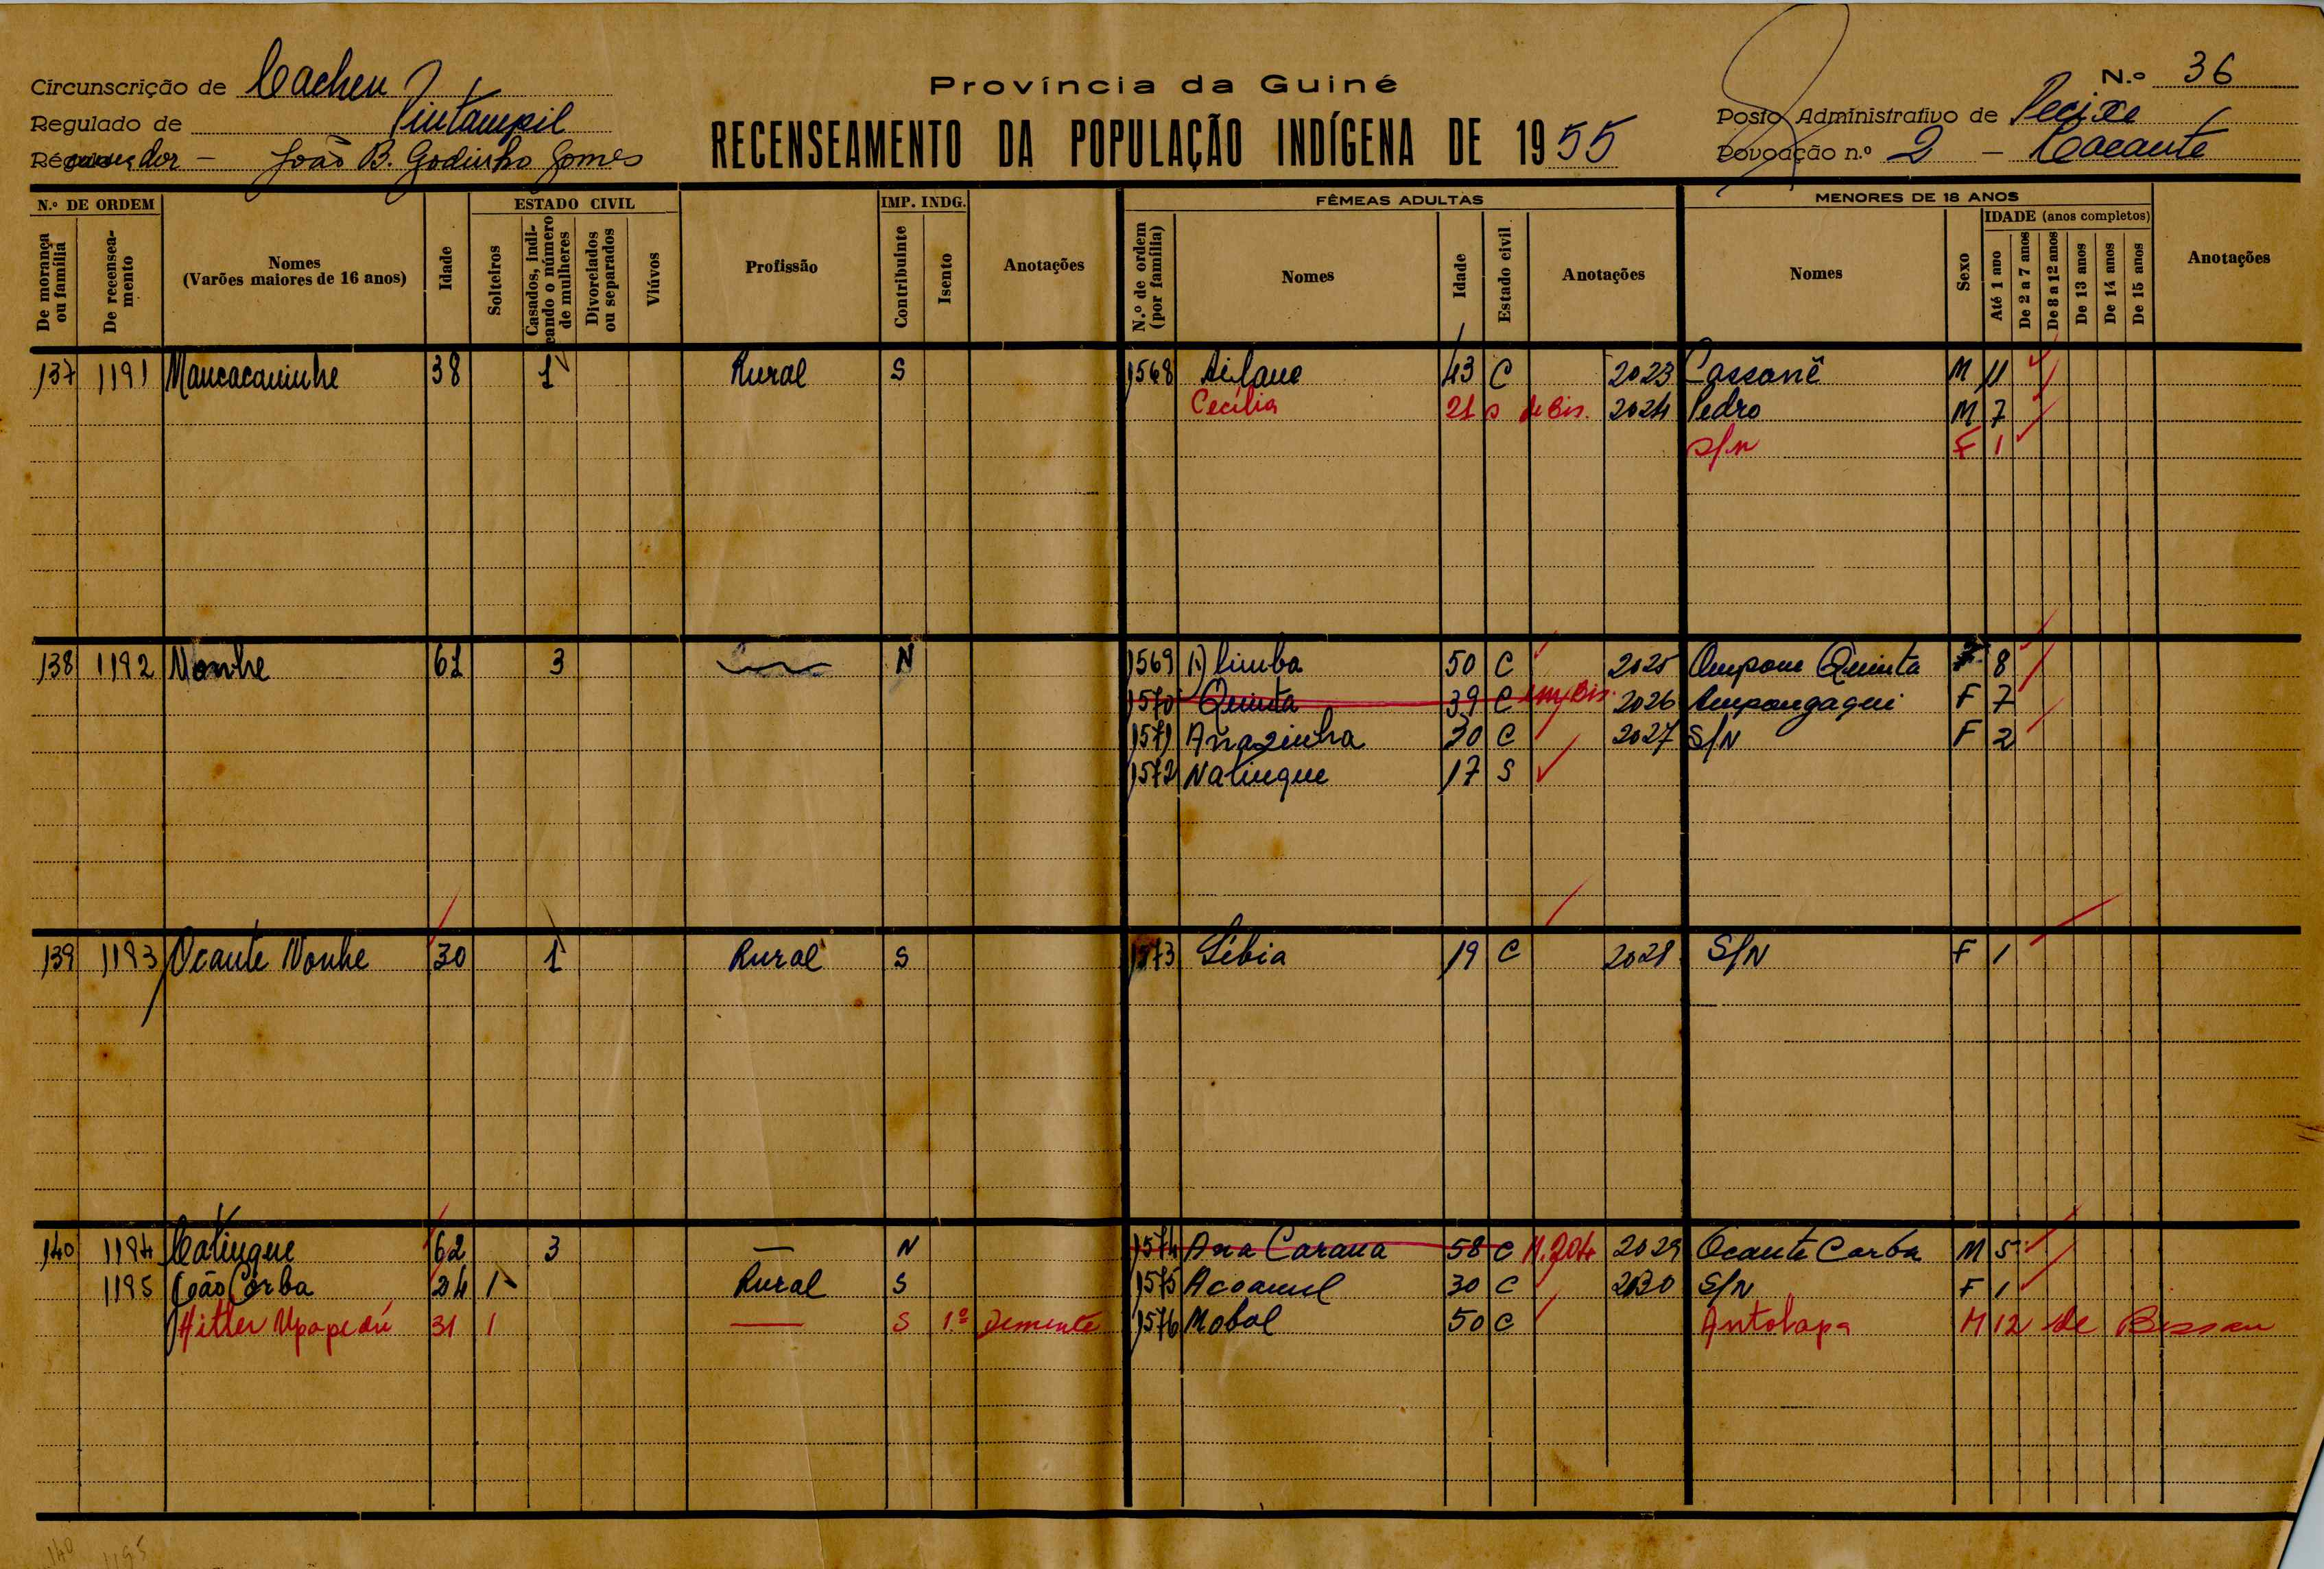 Província da Guiné
N.º 36
Circunscrição de Cacheu
Regulado de Pintampil
João B. Godinho Gomes
RECENSEAMENTO DA POPULAÇÃO INDÍGENA DE 1955
Posto Administrativo de Pecixe
Povoação n.º 2 - Cacante
N.º DE ORDEM
De morança ou família
De recenseamento
Nomes
(Varões maiores de 16 anos)
Idade
ESTADO CIVIL
Solteiros
Casados, indicando o número de mulheres
Divorciados ou separados
Viúvos
Profissão
IMP. INDG.
Contribuinte
Isento
Anotações
FÊMEAS ADULTAS
N.º de ordem (por família)
Nomes
Idade
Estado civil
Anotações
MENORES DE 18 ANOS
Nomes
Sexo
IDADE (anos completos)
Até 1 ano
De 2 a 7 anos
De 8 a 12 anos
De 13 anos
De 14 anos
De 15 anos
Anotações
137 1191 Mancacaninhe 38 1 Rural S 1568 43 C 2023 Cassanê M 11
Cecília 21 S de Bis. 2024 Pedro M 7
S/N F 1
138 1192 Nonhe 61 3 N 1569 50 C 2025 Ampom Quinta F 8
1570 Quinta 39 C 2026 Ampongaqui F 7
1571 Anazinha 30 C 2027 S/N F 2
1572 Natinque 17 S
139 1193 Ocante Nonhe 30 1 Rural S 1573 Libia 19 C 2028 S/N F 1
140 1194 Catinque 62 3 — N 1574 Ana Carana 58 C 2029 Ocante Corba M 5
1195 João Corba 24 1 Rural S 1575 30 C 2030 S/N F 1
Hitler 31 1 — S 1º Demente 1576 Mobol 50 C Antolapa M 12 de Bissau
140 1195